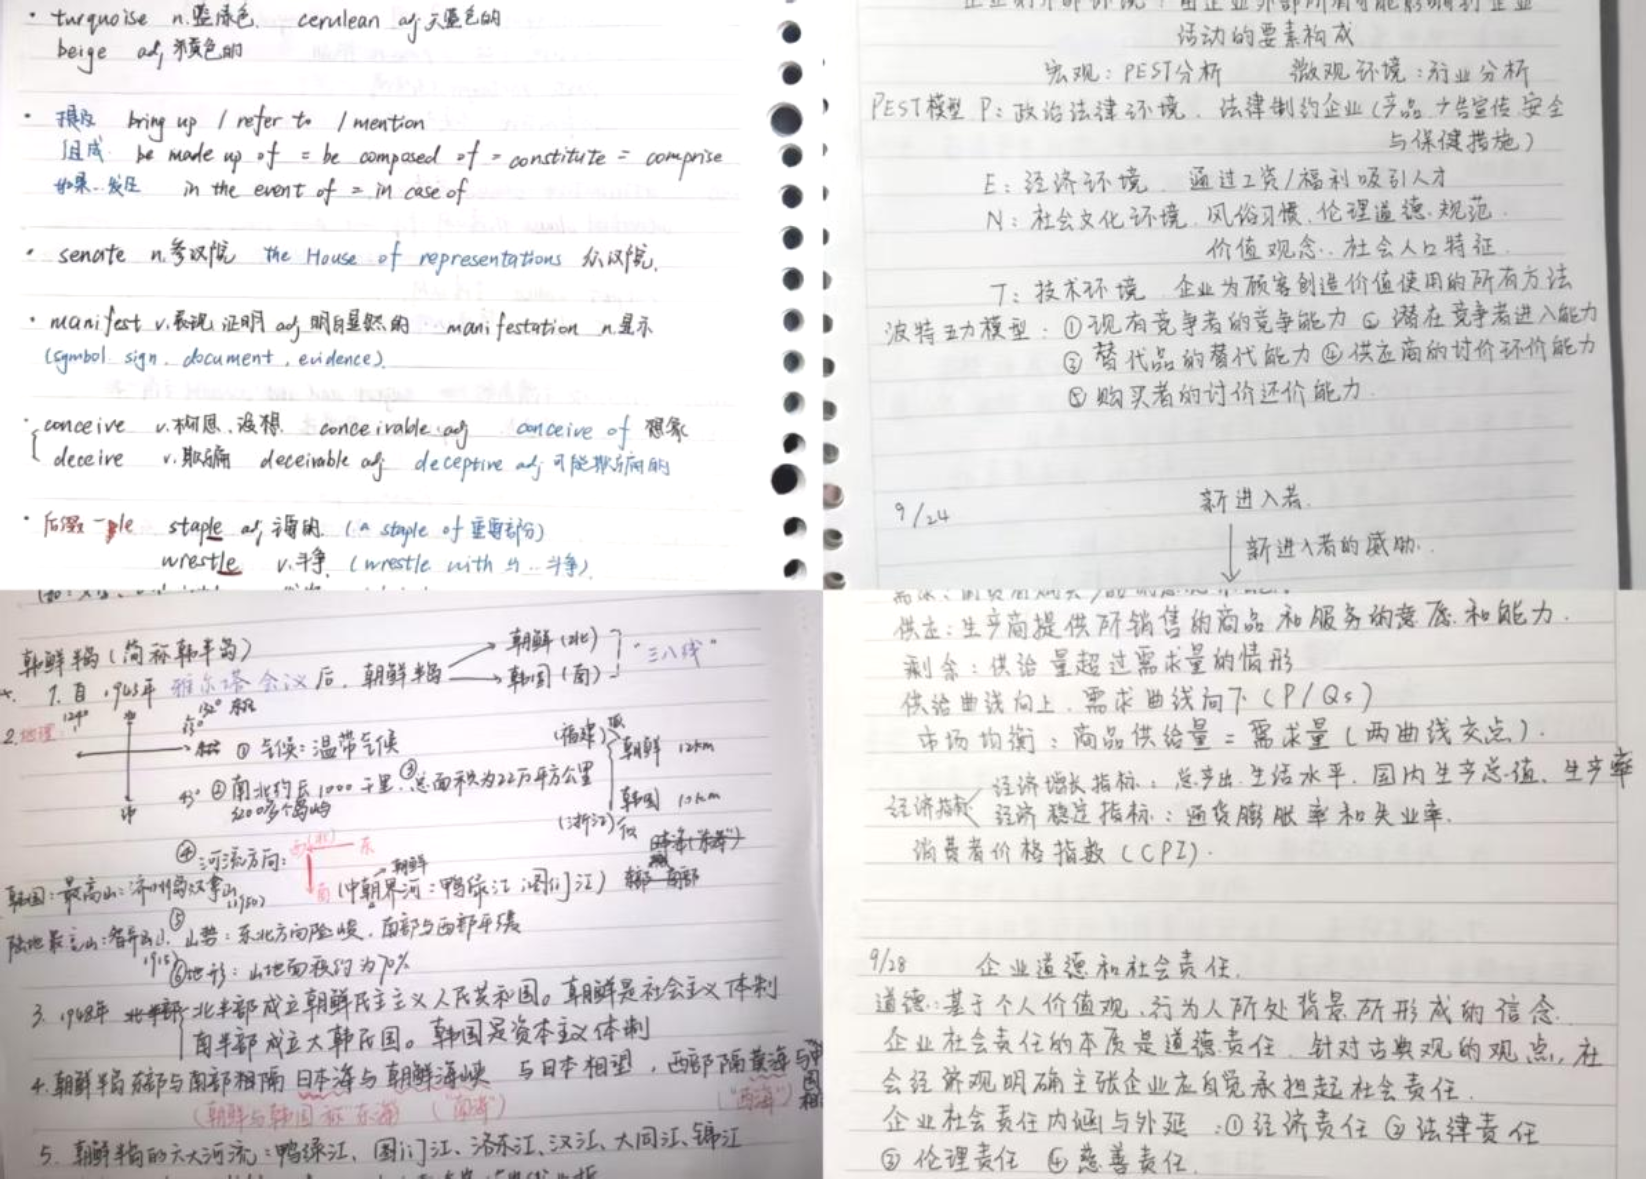 · turquoise n.蓝绿色. cerulean adj 天蓝色的
beige adj 米黄色的
· 提及 bring up / refer to / mention
组成 be made up of = be composed of = constitute = comprise
如果..发生 in the event of = in case of
· senate n.参议院 the House of representations 众议院.
· manifest v.表现 证明 adj 明白显然的 manifestation n.显示
(symbol sign. document, evidence).
· conceive v.构思.设想. conceivable adj conceive of 想象
deceive v.欺骗 deceivable adj deceptive adj 可能欺骗的
· 后缀 -le staple adj 主要的 (a staple of 重要部分)
wrestle v.斗争. (wrestle with 与..斗争).
活动的要素构成
宏观:PEST分析 微观环境:行业分析
PEST模型 P:政治法律环境. 法律制约企业(产品.广告宣传.安全
与保健措施)
E:经济环境. 通过工资/福利吸引人才
N:社会文化环境.风俗习惯.伦理道德.规范.
价值观念..社会人口特征.
T:技术环境. 企业为顾客创造价值使用的所有方法
波特五力模型:①现有竞争者的竞争能力 ②潜在竞争者进入能力
③替代品的替代能力 ④供应商的讨价还价能力
⑤购买者的讨价还价能力.
9/24 新进入者.
新进入者的威胁..
朝鲜半岛(简称韩半岛)
1.自1945年 雅尔塔会议后,朝鲜半岛
朝鲜(北)
韩国(南)
"三八线"
2.地理:
124°
132°
43°
①气候:温带气候
②南北约长1000千里.③总面积为22万平方公里
3200多个岛屿
(福建) 朝鲜 12km
韩国 10km
(浙江)
④河流方向:
东
南
(中朝界河:鸭绿江 图们江)
朝鲜
韩国:最高山:济州岛汉拿山
(1950)
陆地最高山:智异山.
1915
⑤山势:东北方向险峻.南部与西部平缓
⑥地形:山地面积约为70%
3. 1948年 北半部成立朝鲜民主主义人民共和国。朝鲜是社会主义体制
南半部成立大韩民国。韩国是资本主义体制
4.朝鲜半岛东部与南部相隔 日本海与朝鲜海峡 与日本相望,西部隔黄海与中国相
(朝鲜与韩国称"东海) ("南海") ("西海")
5. 朝鲜半岛的六大河流:鸭绿江、图们江、洛东江、汉江、大同江、锦江
供应:生产商提供所销售的商品和服务的意愿和能力.
剩余:供给量超过需求量的情形
供给曲线向上.需求曲线向下(P/Qs)
市场均衡:商品供给量=需求量(两曲线交点).
经济指标
经济增长指标:总产出.生活水平.国内生产总值.生产率
经济稳定指标:通货膨胀率和失业率.
消费者价格指数(CPI).
9/28 企业道德和社会责任.
道德:基于个人价值观.行为人所处背景所形成的信念.
企业社会责任的本质是道德责任.针对古典观的观点,社
会经济观明确主张企业应自觉承担起社会责任.
企业社会责任内涵与外延:①经济责任 ②法律责任
③伦理责任 ④慈善责任.